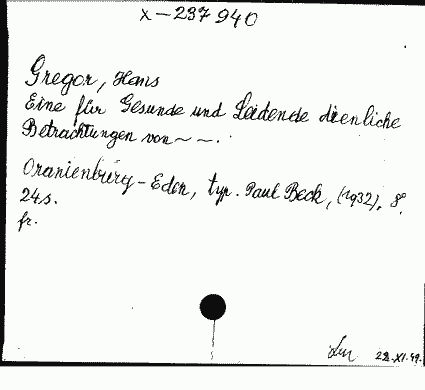 X-237940
Gregor, Hans
Eine für Gesunde und Leidende dienliche
Betrachtungen von ~ ~.
Oranienburg-Eden, typ. Paul Beck, (1932). 8°.
24s.
fr.
22.XI.49.